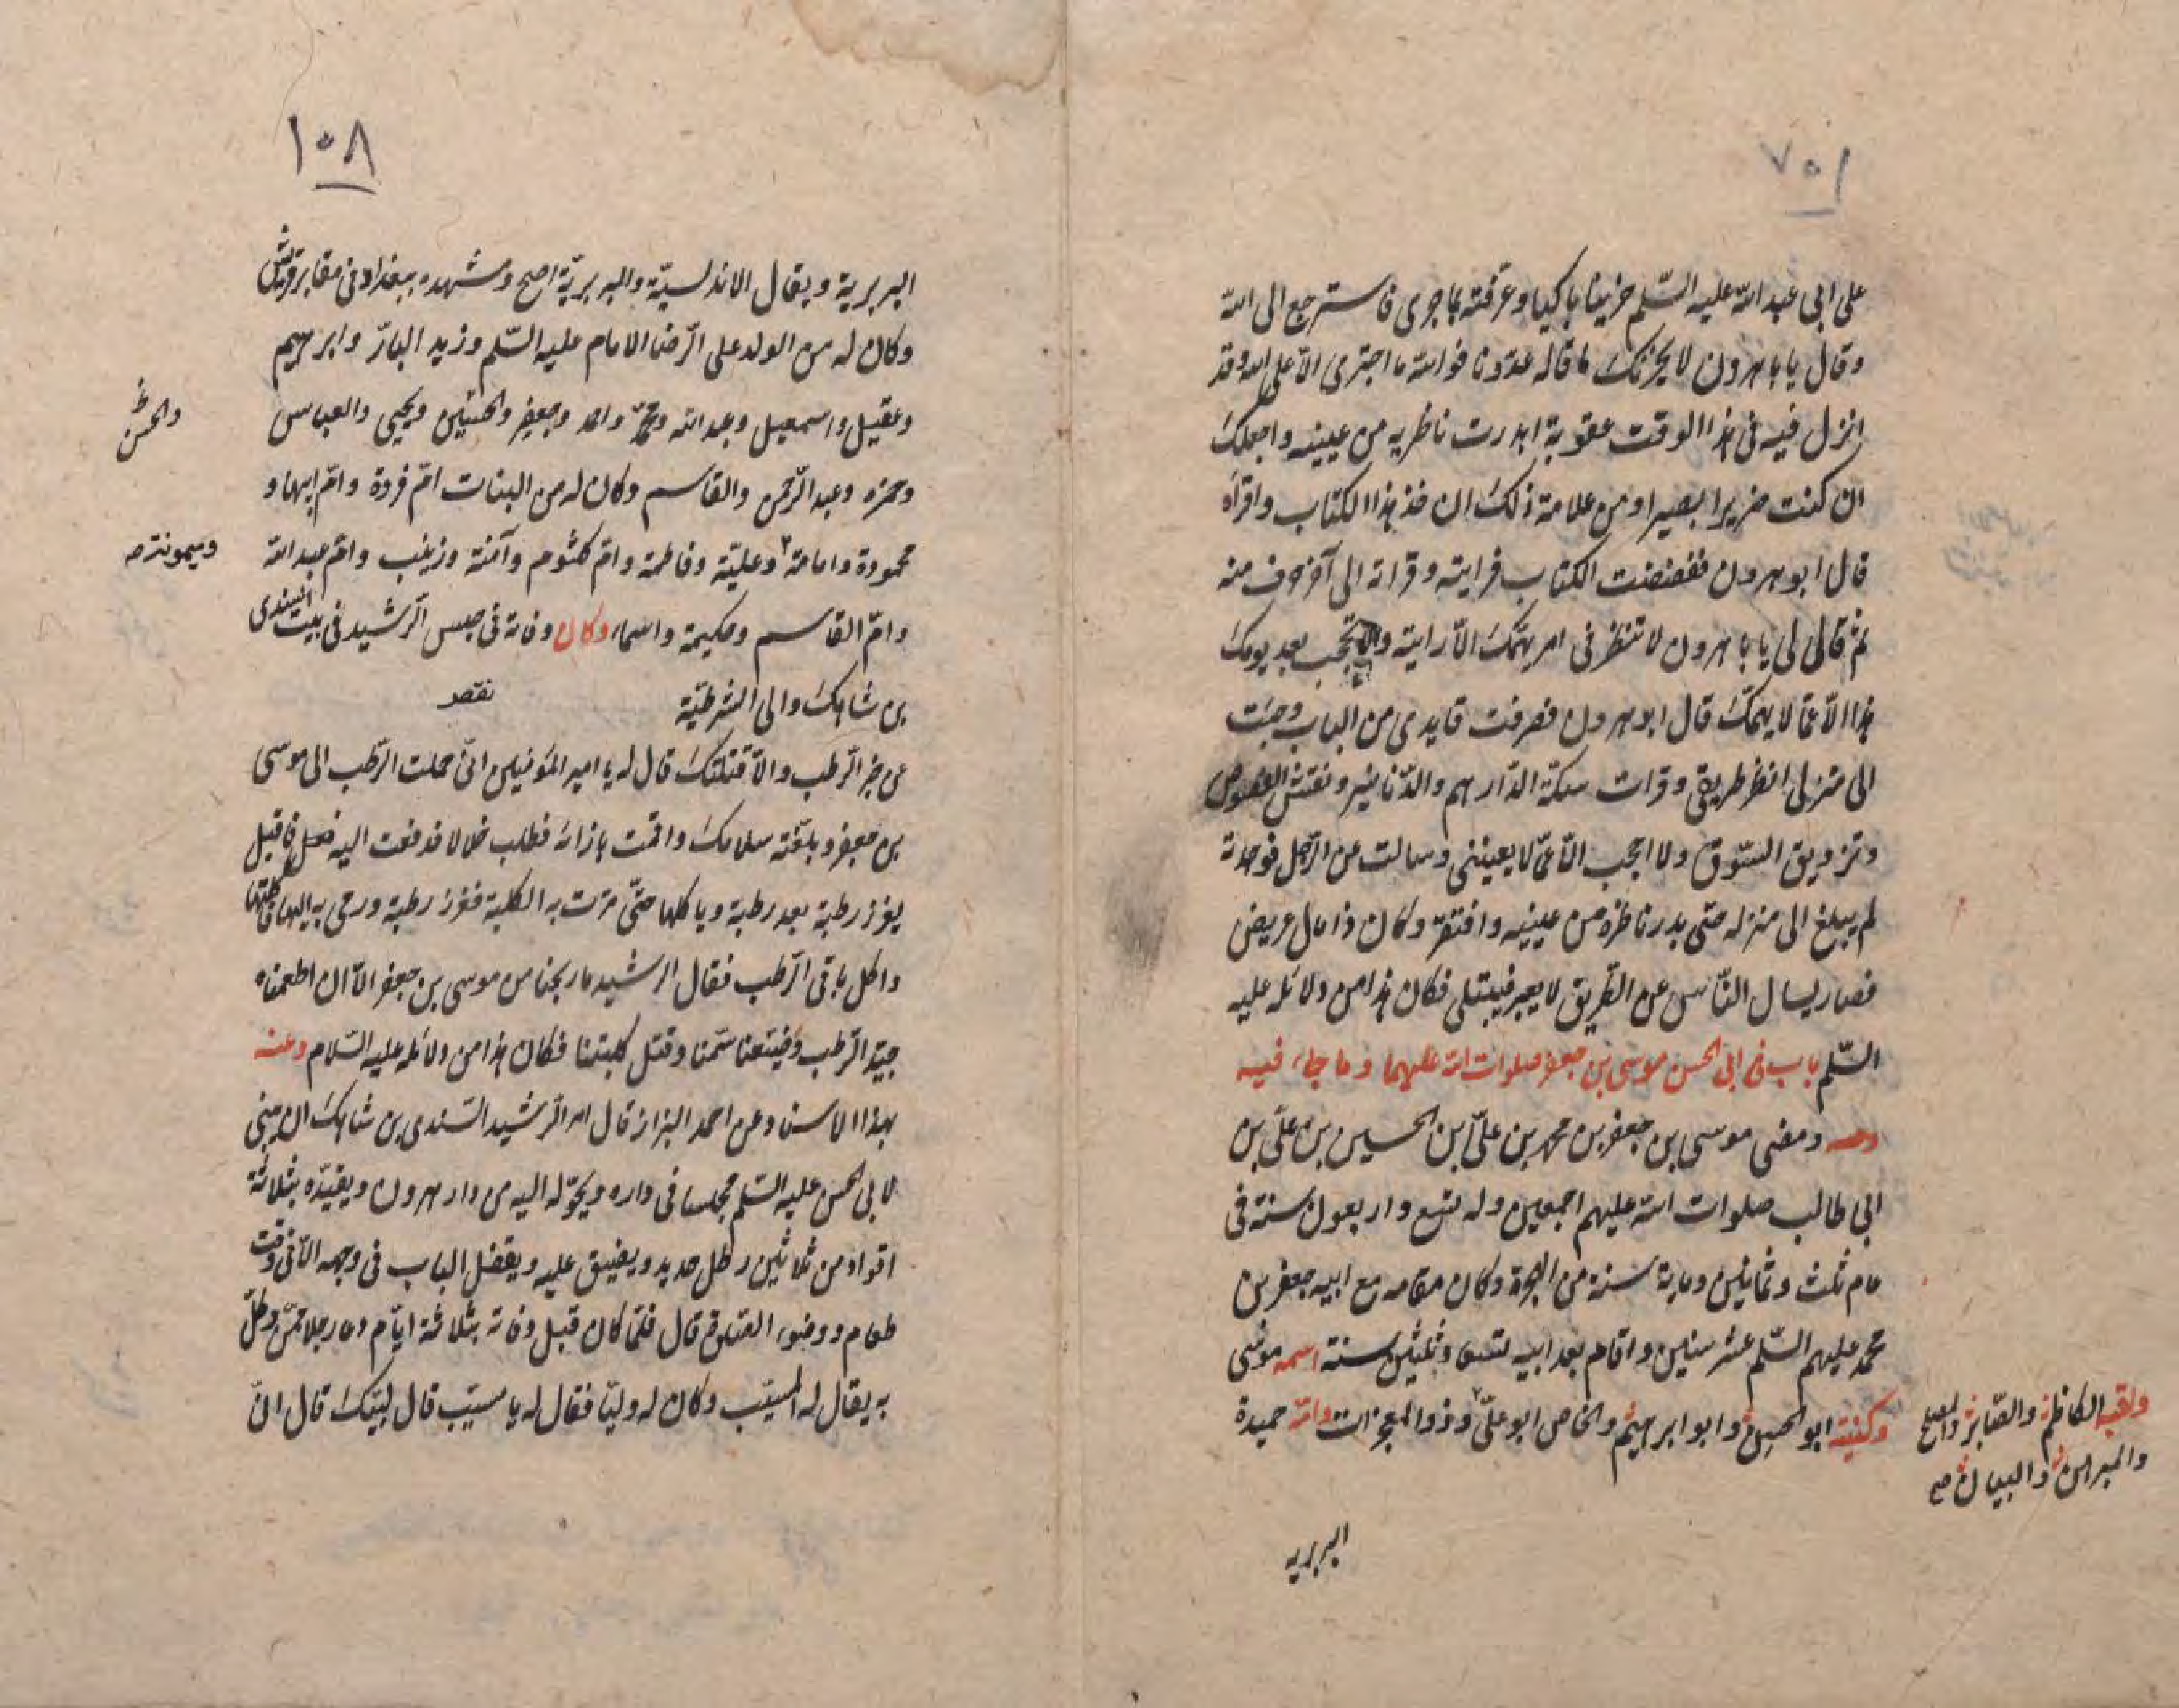 ١٠٧
على ابى عبد الله عليه السّلم حزينا باكيا وعرّفته بما جرى فاسترجع الى الله
وقال يا باهرون لا يحزنك ما قاله عدوّنا فوالله ما اجترى الّا على الله وقد
انزل فيه فى هذا الوقت عقوبة ابدرت ناظريه من عينيه واجعلك
ان كنت ضريرا بصيرا ومن علامة ذلك ان خذ هذا الكتاب واقراه
قال ابو هرون ففضضت الكتاب فرايته وقراته الى آخر حرف منه
ثم قال لى يا باهرون لا تنظر فى امر يهمّك الّا رايته ولا تحجب بعد يومك
هذا الّا عمّا لا يهمّك قال ابو هرون فصرفت قايدى من الباب وجئت
الى منزلى انظر طريقى وقرات سكّة الدّراهم والدّنانير ونقش الفصوص
وتزويق السّوق ولا احجب الّا عمّا لا يعيننى وسالت عن الرّجل فوجدته
لم يبلغ الى منزله حتى بدر ناظره من عينيه وافتقر وكان ذا مال عريض
فصار يسال النّاس عن الطّريق لا يعبر فيبتلى فكان هذا من دلائله عليه
السّلم باب فى ابى الحسن موسى بن جعفر صلوات الله عليهما وما جاء فيه
ومضى موسى بن جعفر بن محمد بن علىّ ابن الحسين بن علىّ بن
ابى طالب صلوات الله عليهم اجمعين وله تسع واربعون سنة فى
عام ثلث وثمانين ومایة سنة من الهجرة وكان مقامه مع ابيه جعفر بن
محمد عليهم السّلم عشر سنين واقام بعد ابيه تسع وثلثين سنة اسمه موسى
وكنيته ابو الحسن وابو ابرهيم والخاص ابو علىّ وذو المعجزات وامّه حميدة
ولقبه الكاظم والصّابر والمصلح
والمبرهن والبيان صح
البربريه
١٠٨
البربرية ويقال الاندلسيّة والبربريّة اصح ومشهده ببغداد فى مقابر قريش
وكان له من الولد على الرّضا الامام عليه السّلم وزيد النارّ وابرهيم
وعقيل واسمعيل وعبد الله ومحمّد واحمد وجعفر والحسين ويحيى والعباس
والحسن
وحمزه وعبد الرّحمن والقاسم وكان له من البنات امّ فروة وامّ ابيها و
محمودة وامامة وعليّة وفاطمة وامّ كلثوم وآمنة وزينب وامّ عبد الله
وميمونة صح
وامّ القاسم وحكيمة واسماء وكان وفاته فى حبس الرّشيد فى بيت السّندى
بن شاهك والى الشرطيّة
نقص
عن خبر الرّطب والّا قتلتك قال له يا امير المؤمنين انّى حملت الرّطب الى موسى
بن جعفر وبلّغته سلامك واقمت بازائه فطلب خلالا فدفعت اليه فعل فاقبل
يغرز رطبة بعد رطبة وياكلها حتّى مرّت به الكلبة فغرز رطبة ورمى به اليها فاكلتها
واكل باقى الرّطب فقال الرشيد ما ربحنا من موسى بن جعفر الّا ان اطعمناه
جيّد الرّطب وضيّعنا سمّنا وقتل كلبتنا فكان هذا من دلائله عليه السّلام وعنه
بهذا الاسناد عن احمد البزاز قال امر الرّشيد السّندى بن شاهك ان يبنى
لابى الحسن عليه السّلم مجلسا فى داره ويحوّله اليه من دار هرون ويقيّده بثلاثة
اقواد من ثلاثين رطل حديد ويضيق عليه ويقفل الباب فى وجهه الّا فى وقت
طعام ووضوء الصّلوة قال فلمّا كان قبل وفاته بثلاثة ايّام دعا رجلا ممّن وكّل
به يقال له المسيّب وكان له وليّا فقال له يا مسيّب قال لبّيك قال انّ